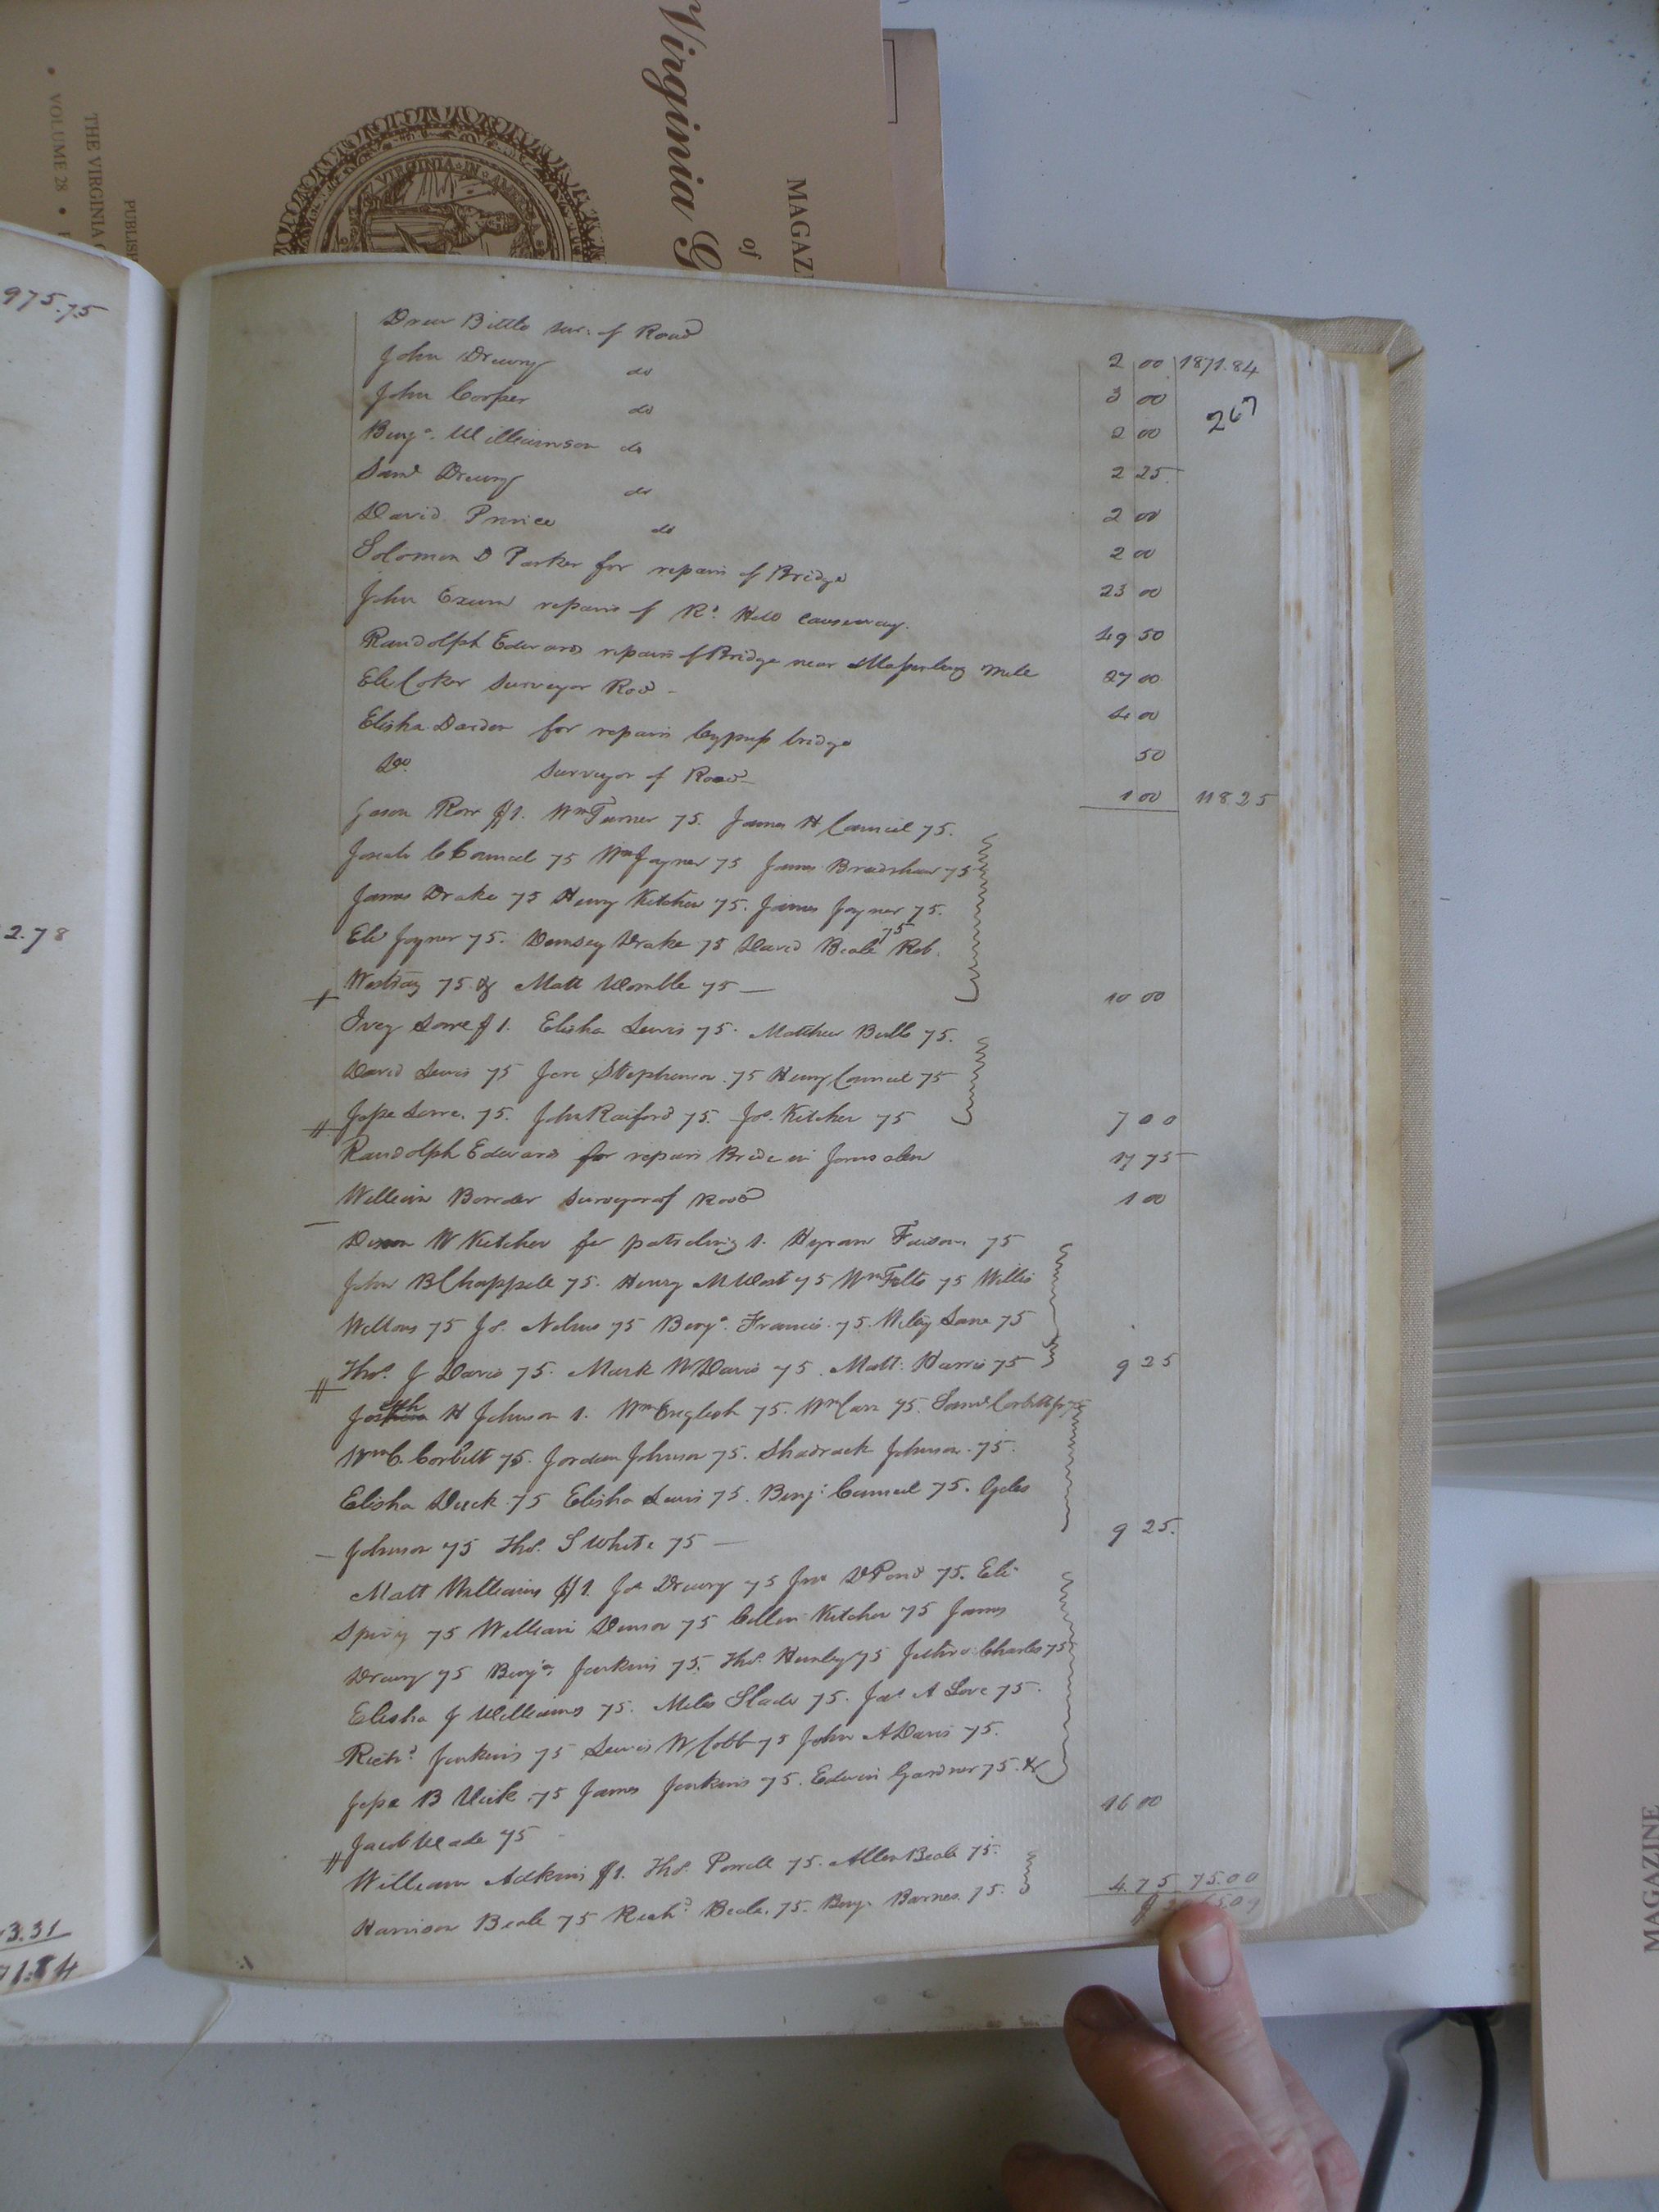 Virginia G
of
MAGAZI
VIRGINIA IN A
PUBLISH
THE VIRGINIA
• VOLUME 28 •
975.75
2.78
3.31
71.84
Drew Bittle sur. of Road 2 00 1871.84
John Drewry do 3 00
267
John Corper do 2 00
Benja. Williamson do 2 25
Saml Drewry do 2 00
David Prince do 2 00
Solomon D Parker for repairs of Bridge 23 00
John Exum repairs of Rd. Hill causeway. 49 50
Randolph Edwards repairs of Bridge near Mill 27 00
Eli Coker Surveyor Rod - 4 00
Elisha Darden for repairs Cypress bridge 50
Do. Surveyor of Road 1 00 118 25
Jason Rorr $1. Wm Turner 75. James H Council 75.
Council 75 Wm Joyner 75 James Bradshaw 75
James Drake 75 Henry Kitchen 75. James Joyner 75.
Eli Joyner 75. Demsey Drake 75 David Beale 75 Rob.
Westray 75 & Matt Womble 75 — 10 00
Ivey $1. Elisha Lewis 75. Matthew Bulls 75.
David Lewis 75 Jere Stephenson 75 Henry Council 75
Jesse 75. John Raiford 75. Jos. Kitchen 75 7 00
Randolph Edwards for repairs Bride in Jerusalem 17 75
William Bowden Surveyor of Road 1 00
Dixon W Kitchen for patroling 1. Hyram Faison 75
John B Chappell 75. Henry M West 75 Wm Felts 75 Willis
Wellons 75 Jos. Nelms 75 Benja. Francis 75. Wiley Lane 75
Thos. J Davis 75. Mark W Davis 75. Matt. Harris 75 9 25
Joseph H Johnson 1. Wm English 75. Wm Carr 75. Saml Corbitt jr 75
Wm C. Corbitt 75. Jordan Johnson 75. Shadrack Johnson 75.
Elisha Duck 75 Elisha Lewis 75. Benj. Council 75. Gyles
Johnson 75 Thos. S White 75 — 9 25.
Matt Williams $1. Jos Drewry 75 Jno D Pond 75. Eli
Spivy 75 William Denson 75 Collin Kitchen 75 James
Drewry 75 Benja. Jenkins 75. Thos. Hunley 75 Jethro Charles 75
Elisha J Williams 75. Miles Slade 75. Jas A Love 75.
Richd. Jenkins 75 Lewis W Cobb 75 John A Davis 75.
Jesse B Vick 75 James Jenkins 75. Edwin Gardner 75. &
Jacob Wade 75 16 00
William Adkins $1. Thos. Powell 75. Allen Beale 75.
Harrison Beale 75 Richd. Beale 75. Benj. Barnes 75. 4.75 75.00
MAGAZINE